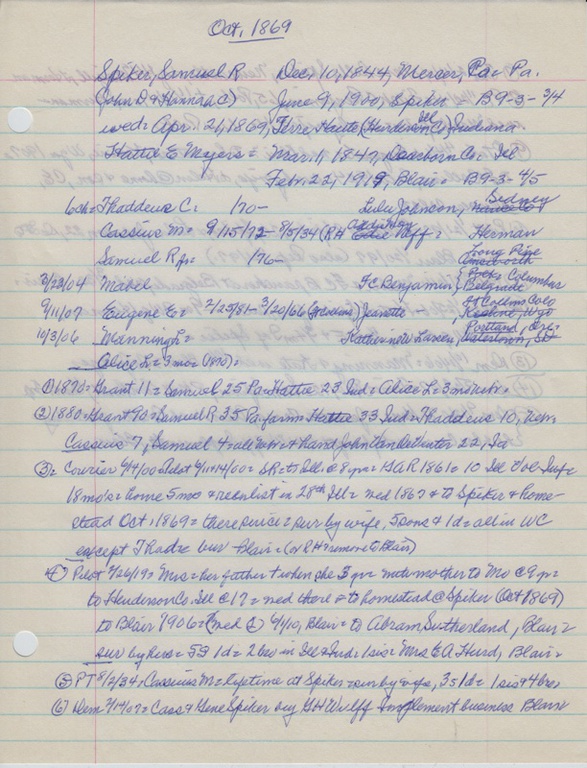 Oct. 1869
Spiker, Samuel R Dec. 10, 1844, Mercer, Pa Pa.
(John D & Hannah C) June 9, 1900, Spiker B9-3-3/4
wed= Apr. 21, 1869, Terre Haute (Henderson Co) Ill Indiana
Hattie E Meyers = Mar. 1, 1847, Dearborn Co. Ill
Feb. 22, 1919, Blair = B9-3-4/5
6 ch= Thaddeus C = 170- Lulu Johnson, Sidney
Cassius M = 9/15/72 - 7/5/34 (RH Addison Neff = Herman
Samuel R jr = 176- Long Pine
2/23/04 Mabel FC Benjamin Columbus Belgrade
9/11/07 Eugene E = 2/25/81 - 3/20/66 Jeanette Ft Collins Colo
10/3/06 Manning L = Katherine Larsen, Portland, Ore.
Alice L = 3 mo (1870) =
(1) 1870= Grant 11= Samuel 25 Pa= Hattie 23 Ind= Alice L= 3 mo Nebr.
(2) 1880= Grant 90= Samuel R 35 Pa farm= Hattie 33 Ind= Thaddeus 10, Nebr.
Cassius 7, Samuel 4= all Nebr= & hand John 22, Ia
(3)= Courier 6/14/00= Pilot 6/14/00= SR= to Ill @ 8 yr= GAR 1861= 10 Ill Vol Inf=
18 mo's= home 5 mo & reenlist in 28th Ill= wed 1867 & to Spiker & home-
stead Oct, 1869= there since= sur by wife, 5 sons & 1 d= all in WC
except Thad= bur Blair= (or RH & remove to Blair)
(4) Pilot 2/26/19= Mrs= her father + when she 3 yr= mother to Mo @ 9 yr=
to Henderson Co. Ill @ 17= wed there & to homestead @ Spiker (Oct 1869)
to Blair 1906= (wed 2) 9/1/10, Blair= to Abram Sutherland, Blair=
sur by hus= 5S 1d= 2 bro in Ill & Ind= 1 sis= Mrs EA Hurd, Blair=
(5) PT 8/2/34= Cassius M= lifetime at Spiker= sur by wife, 3s 1d= 1 sis & 4 bro,
(6) Dem 7/14/07= Cass & Gene Spiker buy GH Wulff implement business Blair